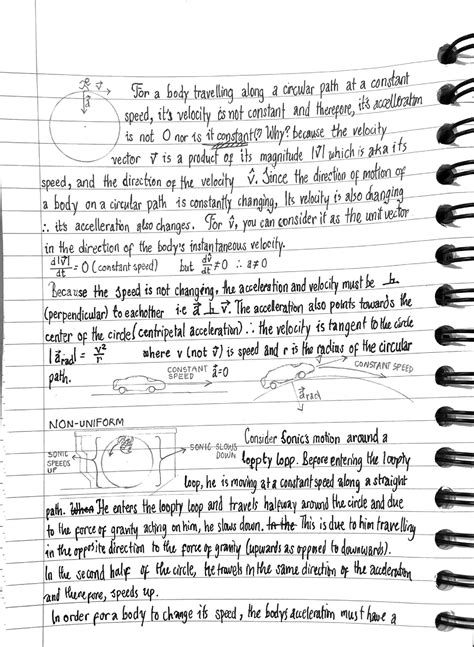 R v⃗
a⃗
For a body travelling along a circular path at a constant
speed, it's velocity is not constant and therefore, it's accelleration
is not 0 nor is it constant(?) Why? because the velocity
vector v⃗ is a product of its magnitude |v⃗| which is aka its
speed, and the direction of the velocity v̂. Since the direction of motion of
a body on a circular path is constantly changing, Its velocity is also changing
∴ it's accelleration also changes. For v̂, you can consider it as the unit vector
in the direction of the body's instantaneous velocity.
d|v⃗|/dt = 0 (constant speed) but dv̂/dt ≠ 0 ∴ a ≠ 0
Because the speed is not changing, the acceleration and velocity must be ⊥
(perpendicular) to eachother i.e a⃗ ⊥ v⃗. The acceleration also points towards the
center of the circle (centripetal acceleration) ∴ the velocity is tangent to the circle
|a⃗rad| = v²/r where v (not v⃗) is speed and r is the radius of the circular
path.
CONSTANT SPEED a⃗=0
CONSTANT SPEED
a⃗rad
NON-UNIFORM
SONIC SPEEDS UP
SONIC SLOWS DOWN
Consider Sonic's motion around a
loopty loop. Before entering the loopty
loop, he is moving at a constant speed along a straight
path. When He enters the loopty loop and travels halfway around the circle and due
to the force of gravity acting on him, he slows down. In the This is due to him travelling
in the opposite direction to the force of gravity (upwards as opposed to downwards).
In the second half of the circle, he travels in the same direction of the acceleration
and therefore, speeds up.
In order for a body to change its speed, the bodys acceleration must have a